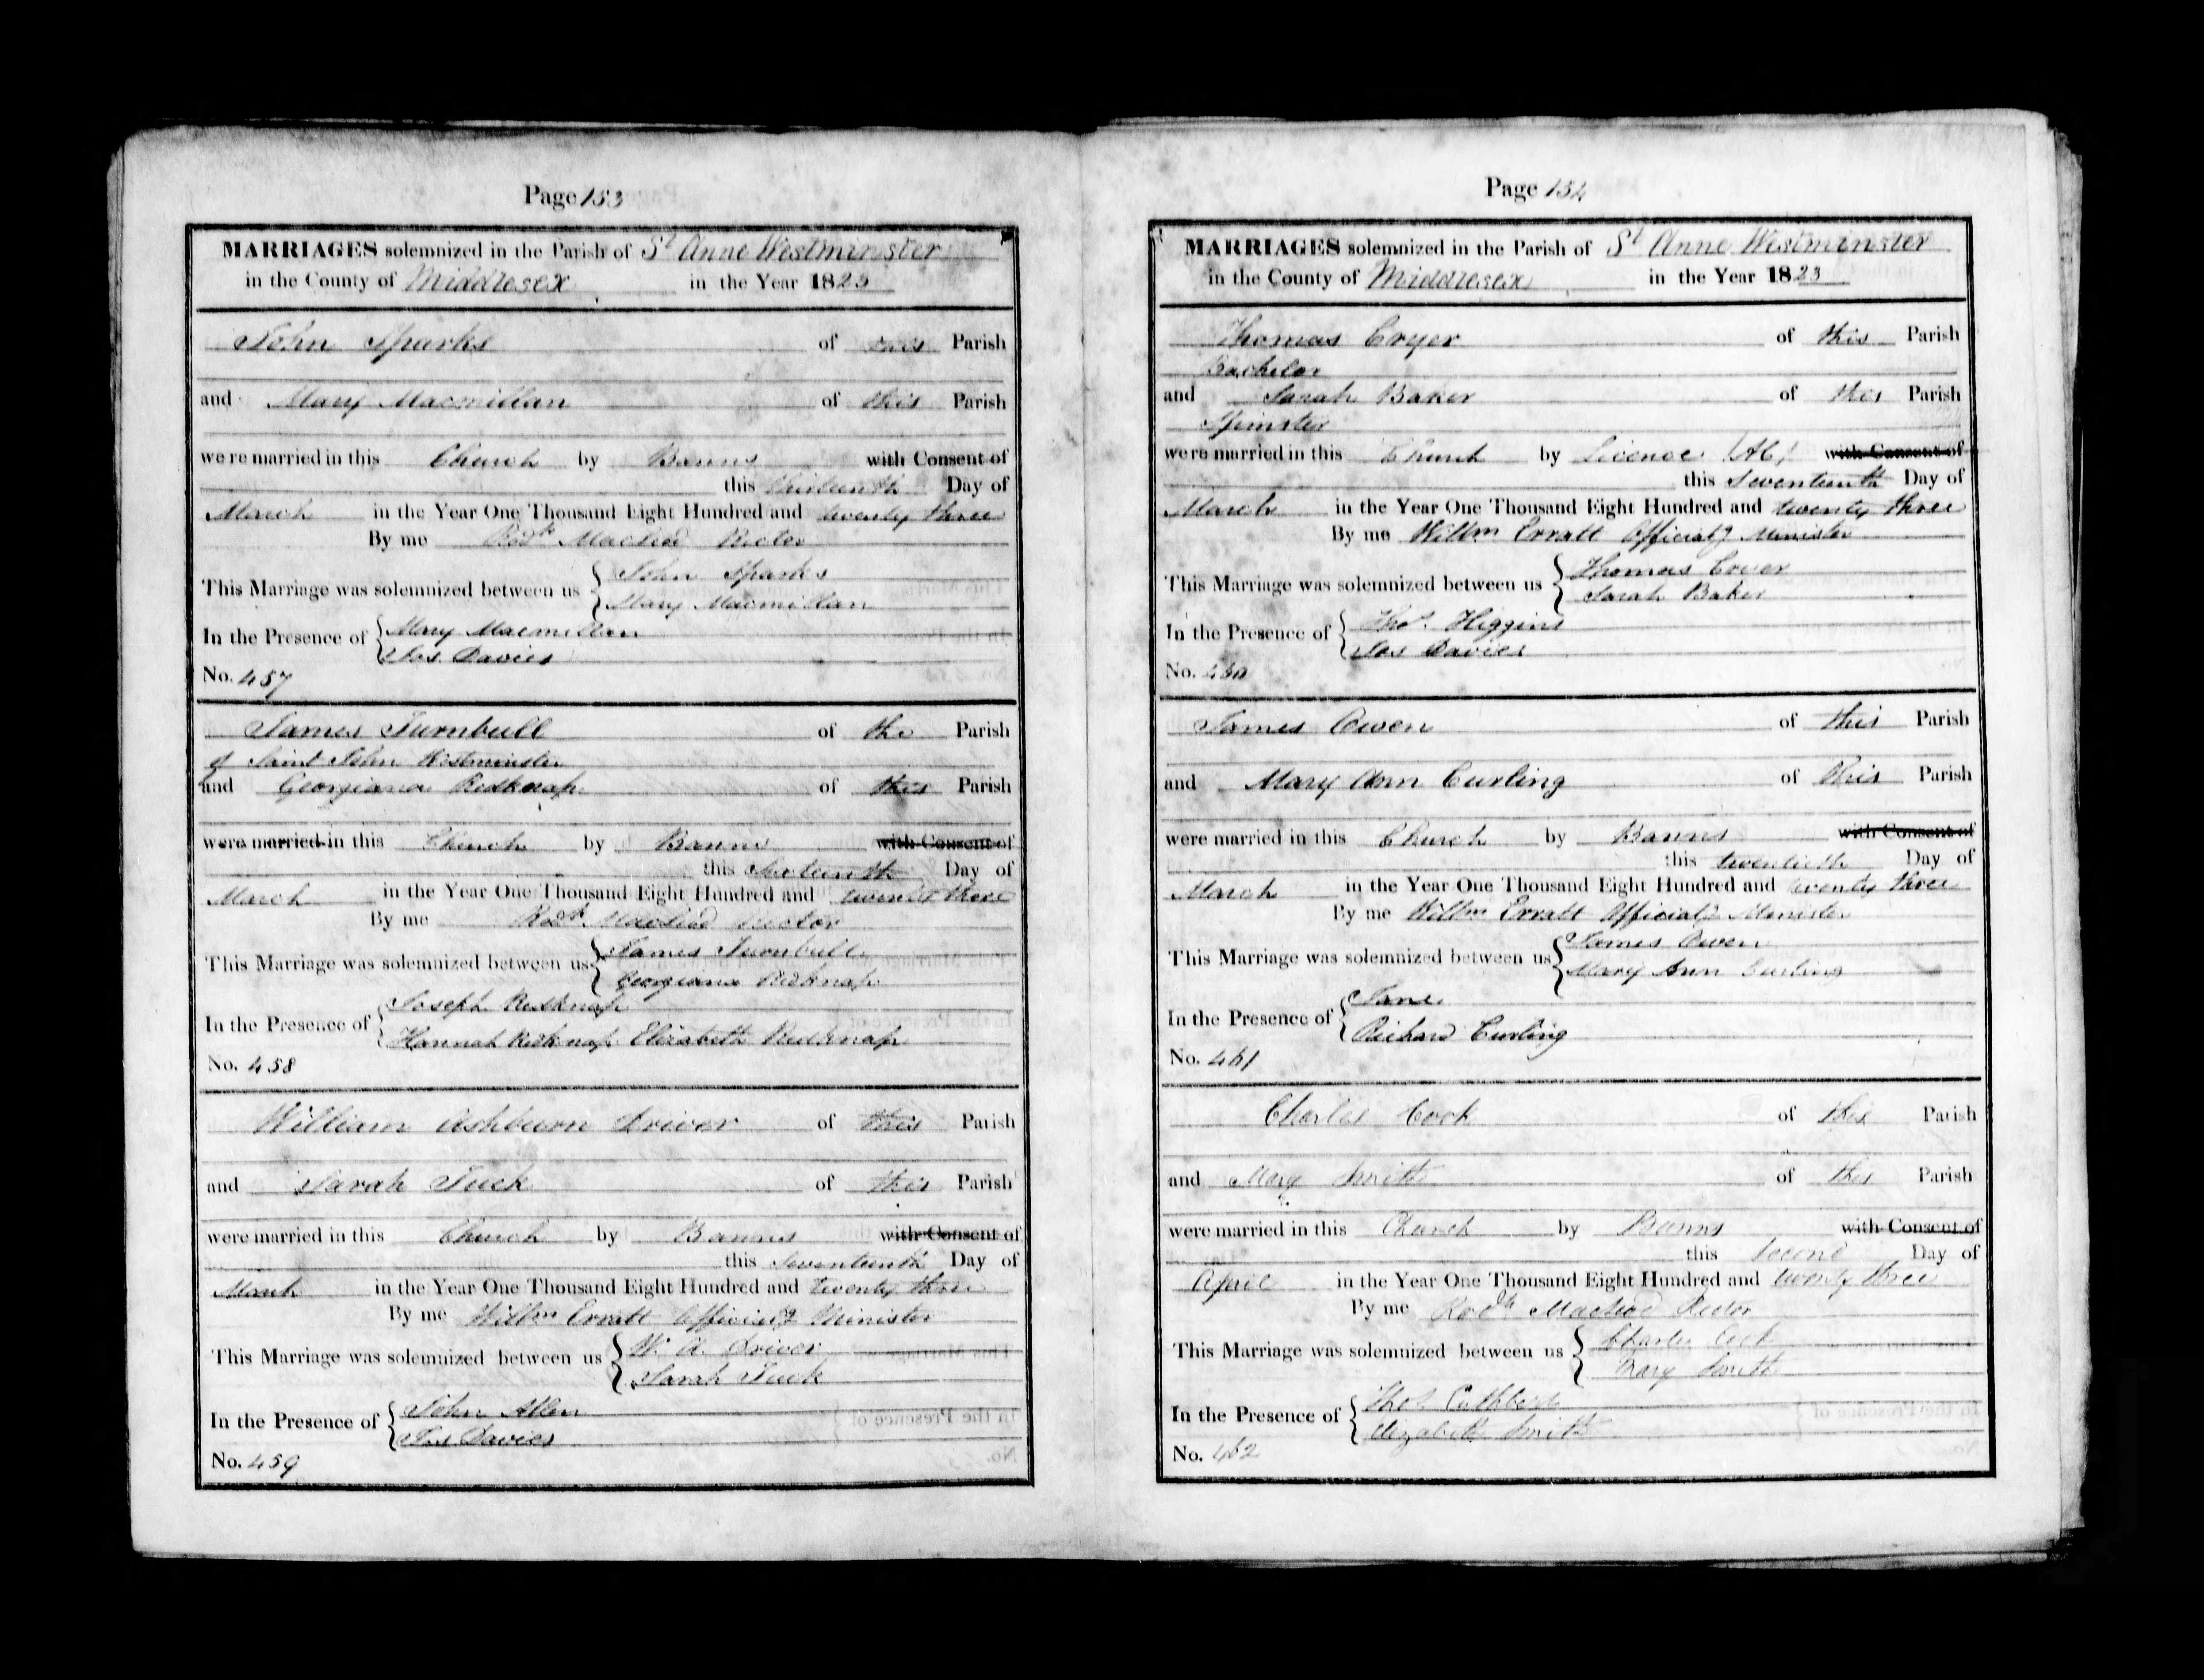 Page 153
MARRIAGES solemnized in the Parish of St Anne Westminster
in the County of Middlesex in the Year 1823
John Sparks of this Parish
and Mary Macmillan of this Parish
were married in this Church by Banns with Consent of
this thirteenth Day of
March in the Year One Thousand Eight Hundred and twenty three
By me Rodk Macleod Rector
This Marriage was solemnized between us John Sparks
Mary Macmillan
In the Presence of Mary Macmillan
Jos. Davies
No. 457
James Turnbull of the Parish
of Saint John Westminster
and Georgiana Redknap of this Parish
were married in this Church by Banns with Consent of
this sixteenth Day of
March in the Year One Thousand Eight Hundred and twenty three
By me Rodk Macleod Rector
This Marriage was solemnized between us James Turnbull
Georgiana Redknap
In the Presence of Joseph Redknap
Hannah Redknap Elizabeth Redknap
No. 458
William Ashburn Driver of this Parish
and Sarah Tuck of this Parish
were married in this Church by Banns with Consent of
this seventeenth Day of
March in the Year One Thousand Eight Hundred and twenty three
By me Willm Erratt Officiatg Minister
This Marriage was solemnized between us W. A. Driver
Sarah Tuck
In the Presence of John Allen
Jos Davies
No. 459
Page 154
MARRIAGES solemnized in the Parish of St Anne Westminster
in the County of Middlesex in the Year 1823
Thomas Cryer of this Parish
Bachelor
and Sarah Baker of this Parish
Spinster
were married in this Church by Licence (AC) with Consent of
this seventeenth Day of
March in the Year One Thousand Eight Hundred and twenty three
By me Willm Erratt Officiatg Minister
This Marriage was solemnized between us Thomas Cryer
Sarah Baker
In the Presence of Thos. Higgins
Jos Davies
No. 460
James Owen of this Parish
and Mary Ann Curling of this Parish
were married in this Church by Banns with Consent of
this twentieth Day of
March in the Year One Thousand Eight Hundred and twenty three
By me Willm Erratt Officiatg Minister
This Marriage was solemnized between us James Owen
Mary Ann Curling
In the Presence of Jane
Richard Curling
No. 461
Charles Cock of this Parish
and Mary Smith of this Parish
were married in this Church by Banns with Consent of
this Second Day of
April in the Year One Thousand Eight Hundred and twenty three
By me Rodk Macleod Rector
This Marriage was solemnized between us Charles Cock
Mary Smith
In the Presence of Thos Cuthbert
Elizabeth Smith
No. 462